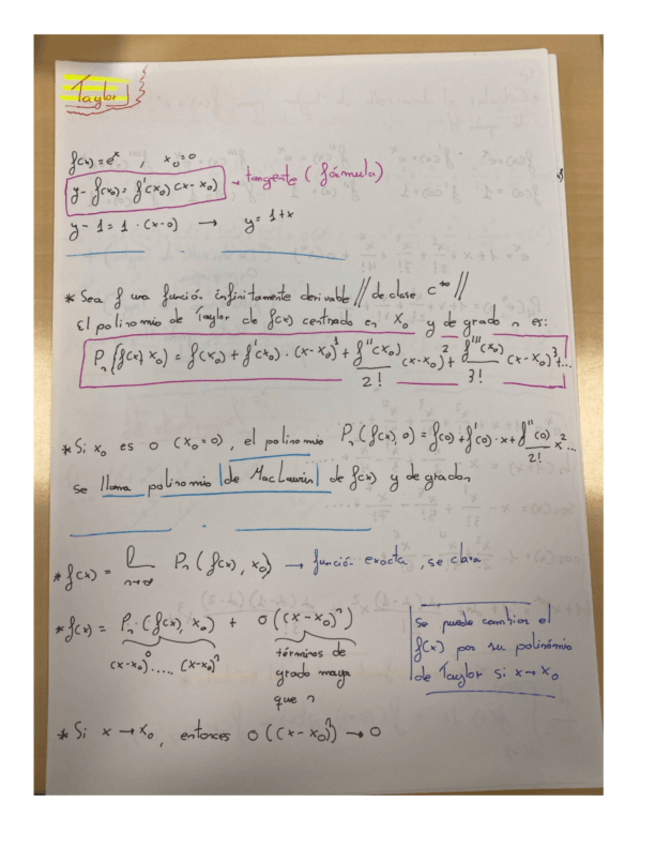 Taylor
f(x)=eˣ , x₀=0
y-f(x₀)=f'(x₀)(x-x₀) → tangente (fórmula)
y-1=1·(x-0) → y=1+x
* Sea f una función infinitamente derivable // de clase C^∞ //
El polinomio de Taylor de f(x) centrado en x₀ y de grado n es:
Pₙ(f(x), x₀) = f(x₀) + f'(x₀)·(x-x₀)¹ + f''(x₀)/2! (x-x₀)² + f'''(x₀)/3! (x-x₀)³+...
* Si x₀ es 0 (x₀=0), el polinomio Pₙ(f(x),0) = f(0)+f'(0)·x+f''(0)/2! x²...
se llama polinomio de MacLaurin de f(x) y de grado n
* f(x) = l n→∞ Pₙ(f(x), x₀) → función exacta, se clava
* f(x) = Pₙ(f(x), x₀) + o((x-x₀)ⁿ)
(x-x₀)⁰..... (x-x₀)ⁿ
términos de
grado mayor
que n
Se puede cambiar el
f(x) por su polinómio
de Taylor si x→x₀
* Si x→x₀, entonces o((x-x₀)ⁿ) → 0